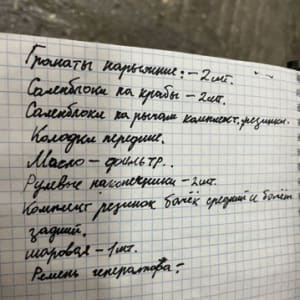 Гранаты наружние: - 2 шт.
Саленблоки на крабы - 2 шт.
Саленблоки на рычаги комплект. резинки.
Колодки передние.
Масло - фильтр.
Рулевые наконечники - 2 шт.
Комплект резинок средний и
задний.
шаровая - 1 шт.
Ремень генератора -